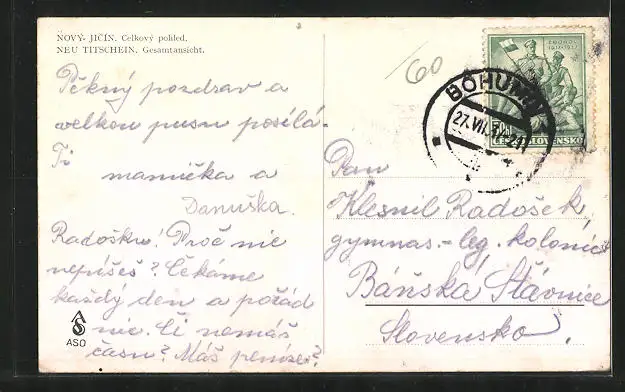 NOVÝ-JIČÍN. Celkový pohled.
NEU TITSCHEIN. Gesamtansicht.
Pěkný pozdrav a
velkou pusu posílá-
Ti
mamička a
Danuška.
Radošku! Proč nic
nepíšeš? Čekáme
každý den a pořád
nic. Či nemáš
času? Máš peníze?
ASO
/60
ZBOROV
1917-1937
50h
ČESKOSLOVENSKO
BOHUMÍN
27.VII.
Pan
Klesnil Radošek,
gymnas.-leg. kolonie
Báňská Štávnice
Slovensko.